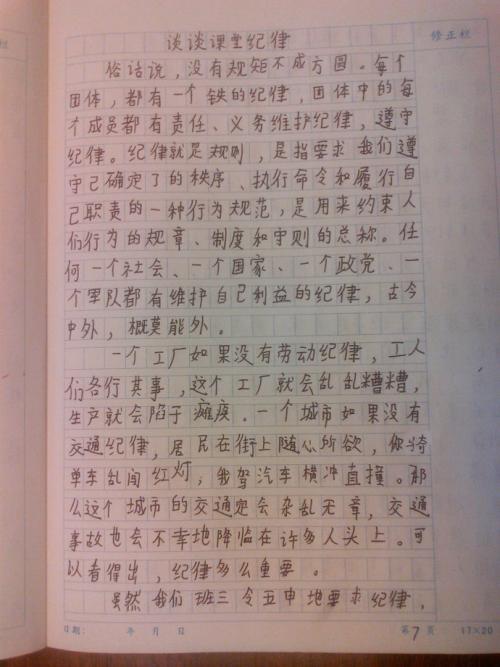 修正栏
谈谈课堂纪律
俗话说，没有规矩不成方圆。每个
团体，都有一个铁的纪律，团体中的每
个成员都有责任、义务维护纪律，遵守
纪律。纪律就是规则，是指要求我们遵
守已确定了的秩序、执行命令和履行自
己职责的一种行为规范，是用来约束人
们行为的规章、制度和守则的总称。任
何一个社会、一个国家、一个政党、一
个军队都有维护自己利益的纪律，古今
中外，概莫能外。
一个工厂如果没有劳动纪律，工人
们各行其事，这个工厂就会乱乱糟糟，
生产就会陷于瘫痪．一个城市如果没有
交通纪律，居民在街上随心所欲，你骑
单车乱闯红灯，我驾汽车横冲直撞。那
么这个城市的交通定会杂乱无章，交通
事故也会不幸地降临在许多人头上。可
以看得出，纪律多么重要。
虽然我们班三令五申地要求纪律，
日期： 年 月 日 第7页 17×20